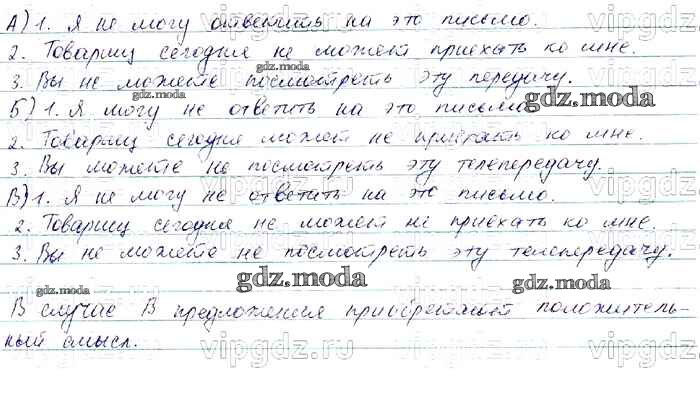 А) 1. Я не могу ответить на это письмо.
2. Товарищ сегодня не может приехать ко мне.
3. Вы не можете посмотреть эту передачу.
Б) 1. Я могу не ответить на это письмо
2. Товарищ сегодня может не приехать ко мне.
3. Вы можете не посмотреть эту телепередачу.
В) 1. Я не могу не ответить на это письмо.
2. Товарищ сегодня не может не приехать ко мне.
3. Вы не можете не посмотреть эту телепередачу.
В случае В предложения приобретают положитель-
ный смысл.
gdz.moda
gdz.moda
gdz.moda
gdz.moda
gdz.moda
gdz.moda
gdz.moda
vipgdz.ru